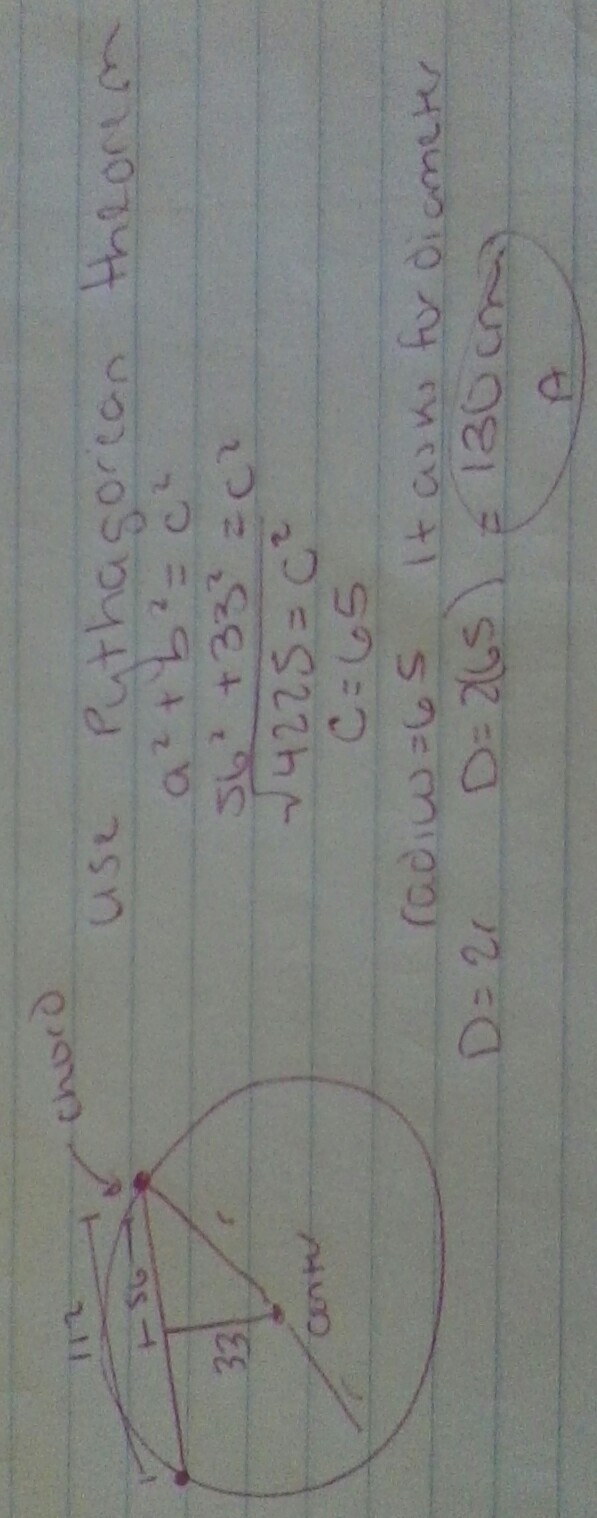 chord
112
56
33
r
center
use Pythagorean theorem
a² + b² = c²
56² + 33² = c²
√4225 = c²
C = 65
radius = 65 It asks for diameter
D = 2r D = 2(65) = 130 cm
A